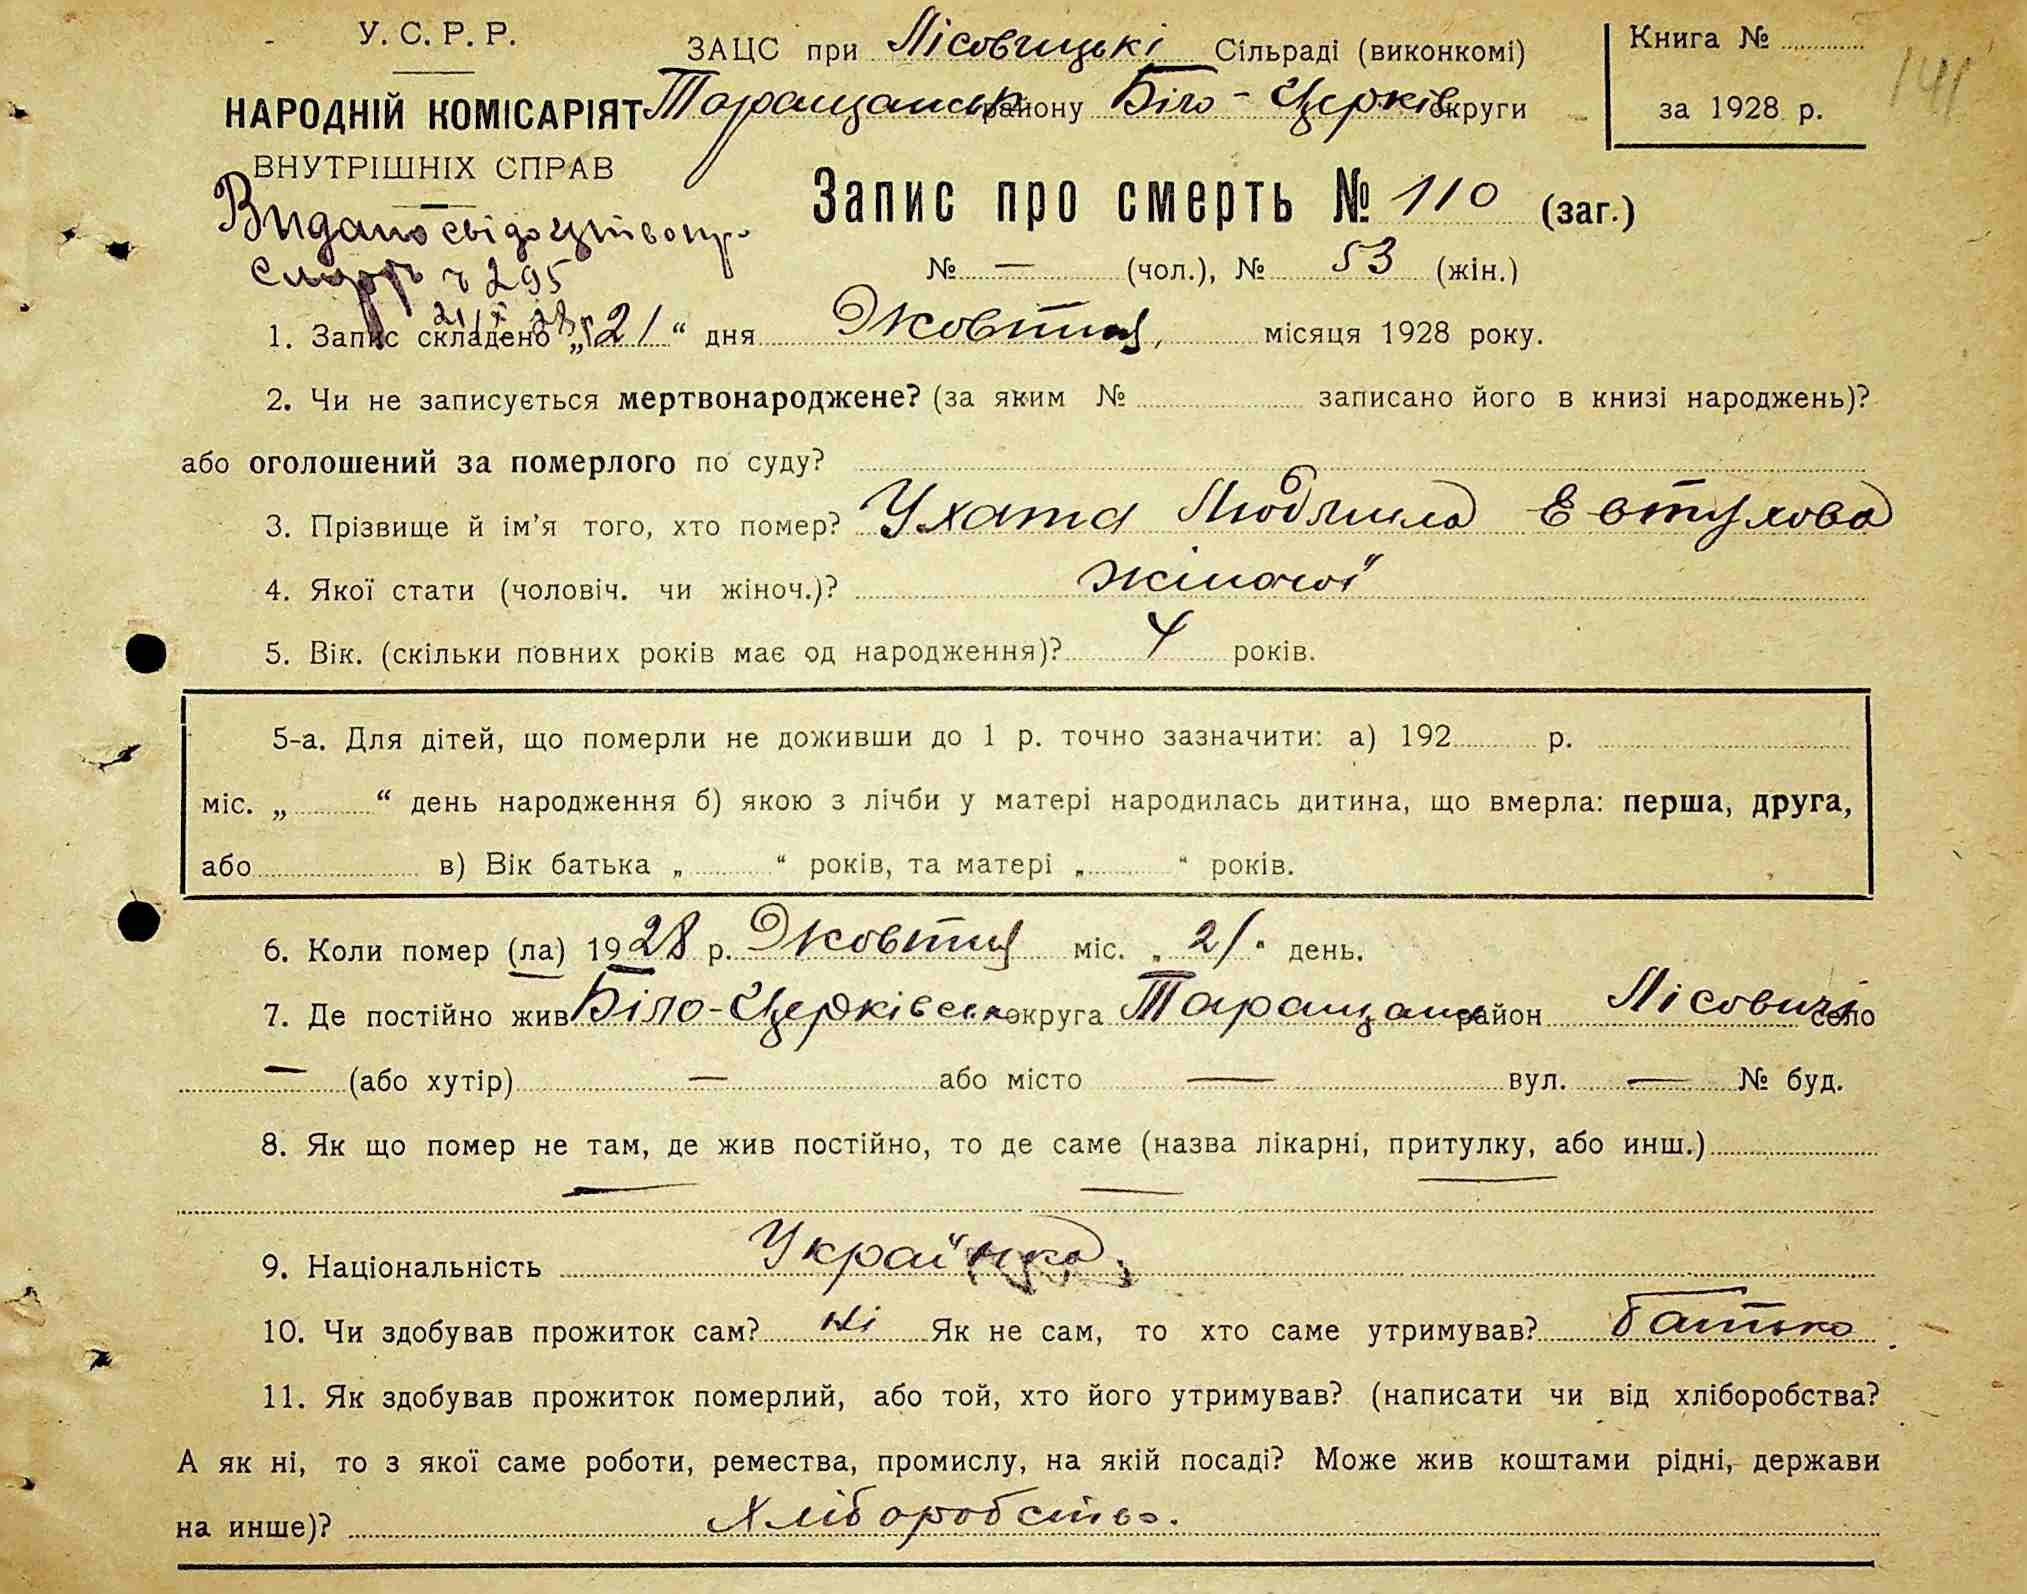 У. С. Р. Р.
ЗАЦС при Лісовицькі Сільраді (виконкомі)
Книга №
141
НАРОДНІЙ КОМІСАРІЯТ
Таращанськ району Біло-Церків округи
за 1928 р.
ВНУТРІШНІХ СПРАВ
Видано свідоцтво про
смерть ч 295
21/X 28 р
Запис про смерть № 110 (заг.)
№ — (чол.), № 53 (жін.)
1. Запис складено „21“ дня Жовтня, місяця 1928 року.
2. Чи не записується мертвонароджене? (за яким № записано його в книзі народжень)?
або оголошений за померлого по суду?
3. Прізвище й ім’я того, хто помер? Ухата Людмила Евтухова
4. Якої стати (чоловіч. чи жіноч.)? жіночої
5. Вік. (скільки повних років має од народження)? 4 років.
5-а. Для дітей, що померли не доживши до 1 р. точно зазначити: а) 192 р.
міс. „ “ день народження б) якою з лічби у матері народилась дитина, що вмерла: перша, друга,
або в) Вік батька „ “ років, та матері „ “ років.
6. Коли помер (ла) 1928 р. Жовтня міс. „21“ день.
7. Де постійно жив Біло-Церківськ округа Таращанськ район Лісовичі село
— (або хутір) — або місто — вул. — № буд.
8. Як що помер не там, де жив постійно, то де саме (назва лікарні, притулку, або инш.)
— — —
9. Національність Українка
10. Чи здобував прожиток сам? ні Як не сам, то хто саме утримував? батько
11. Як здобував прожиток померлий, або той, хто його утримував? (написати чи від хліборобства?
А як ні, то з якої саме роботи, ремества, промислу, на якій посаді? Може жив коштами рідні, держави
на инше)? Хліборобство.